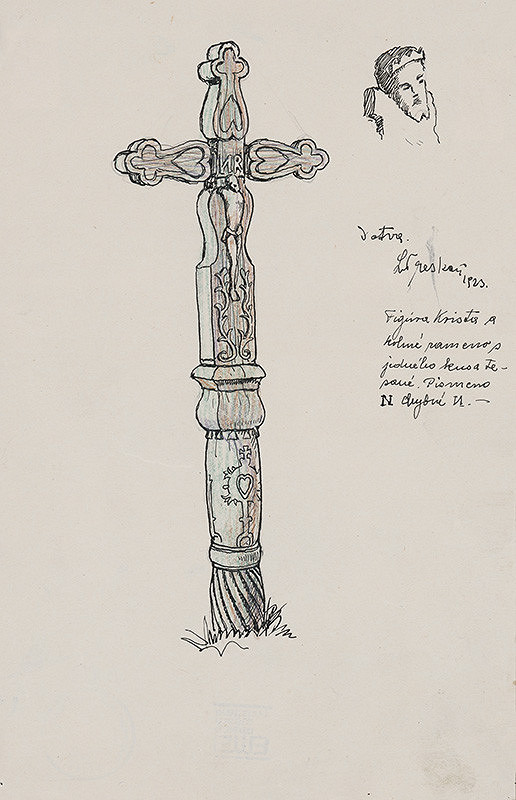 INR
Detva.
1923.
Figúra Krista a
kolmé rameno s
jedného kusa te-
sané. Pismeno
N chybné И. —